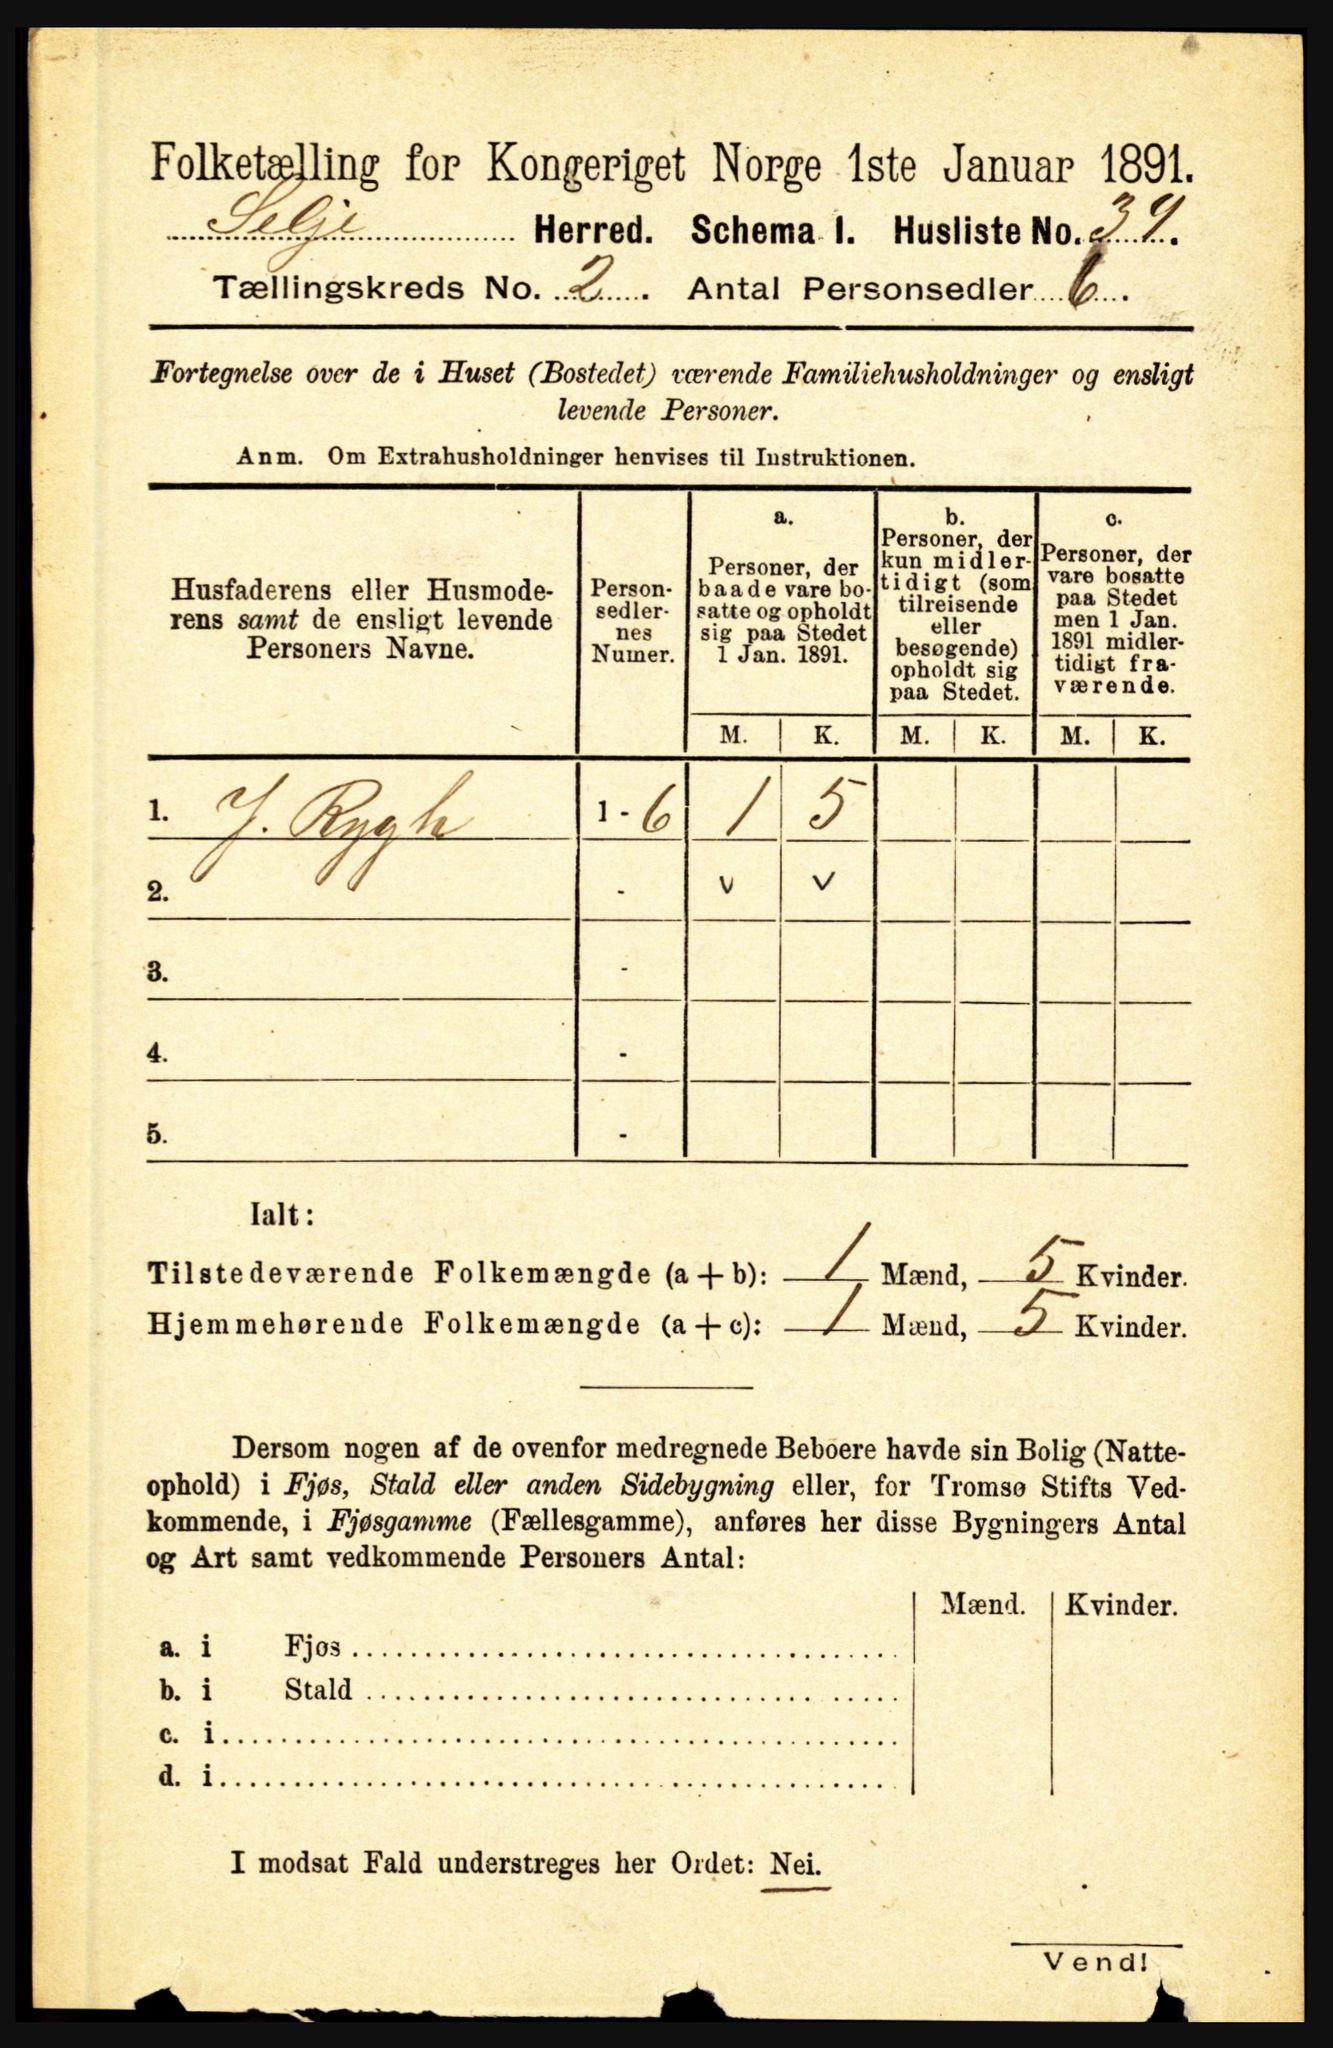 Folketælling for Kongeriget Norge 1ste Januar 1891.
Selje Herred. Schema I. Husliste No. 39.
Tællingskreds No. 2. Antal Personsedler 6.
Fortegnelse over de i Huset (Bostedet) værende Familiehusholdninger og ensligt
levende Personer.
Anm. Om Extrahusholdninger henvises til Instruktionen.
Husfaderens eller Husmode-
rens samt de ensligt levende
Personers Navne.
Person-
sedler-
nes
Numer.
a.
Personer, der
baade vare bo-
satte og opholdt
sig paa Stedet
1 Jan. 1891.
b.
Personer, der
kun midler-
tidigt (som
tilreisende
eller
besøgende)
opholdt sig
paa Stedet.
c.
Personer, der
vare bosatte
paa Stedet
men 1 Jan.
1891 midler-
tidigt fra-
værende.
M. K. M. K. M. K.
1. J. Rygh 1 - 6 1 5
2. - v v
3. -
4. -
5. -
Ialt:
Tilstedeværende Folkemængde (a + b): 1 Mænd, 5 Kvinder.
Hjemmehørende Folkemængde (a + c): 1 Mænd, 5 Kvinder.
Dersom nogen af de ovenfor medregnede Beboere havde sin Bolig (Natte-
ophold) i Fjøs, Stald eller anden Sidebygning eller, for Tromsø Stifts Ved-
kommende, i Fjøsgamme (Fællesgamme), anføres her disse Bygningers Antal
og Art samt vedkommende Personers Antal:
Mænd. Kvinder.
a. i Fjøs
b. i Stald
c. i
d. i
I modsat Fald understreges her Ordet: Nei.
Vend!